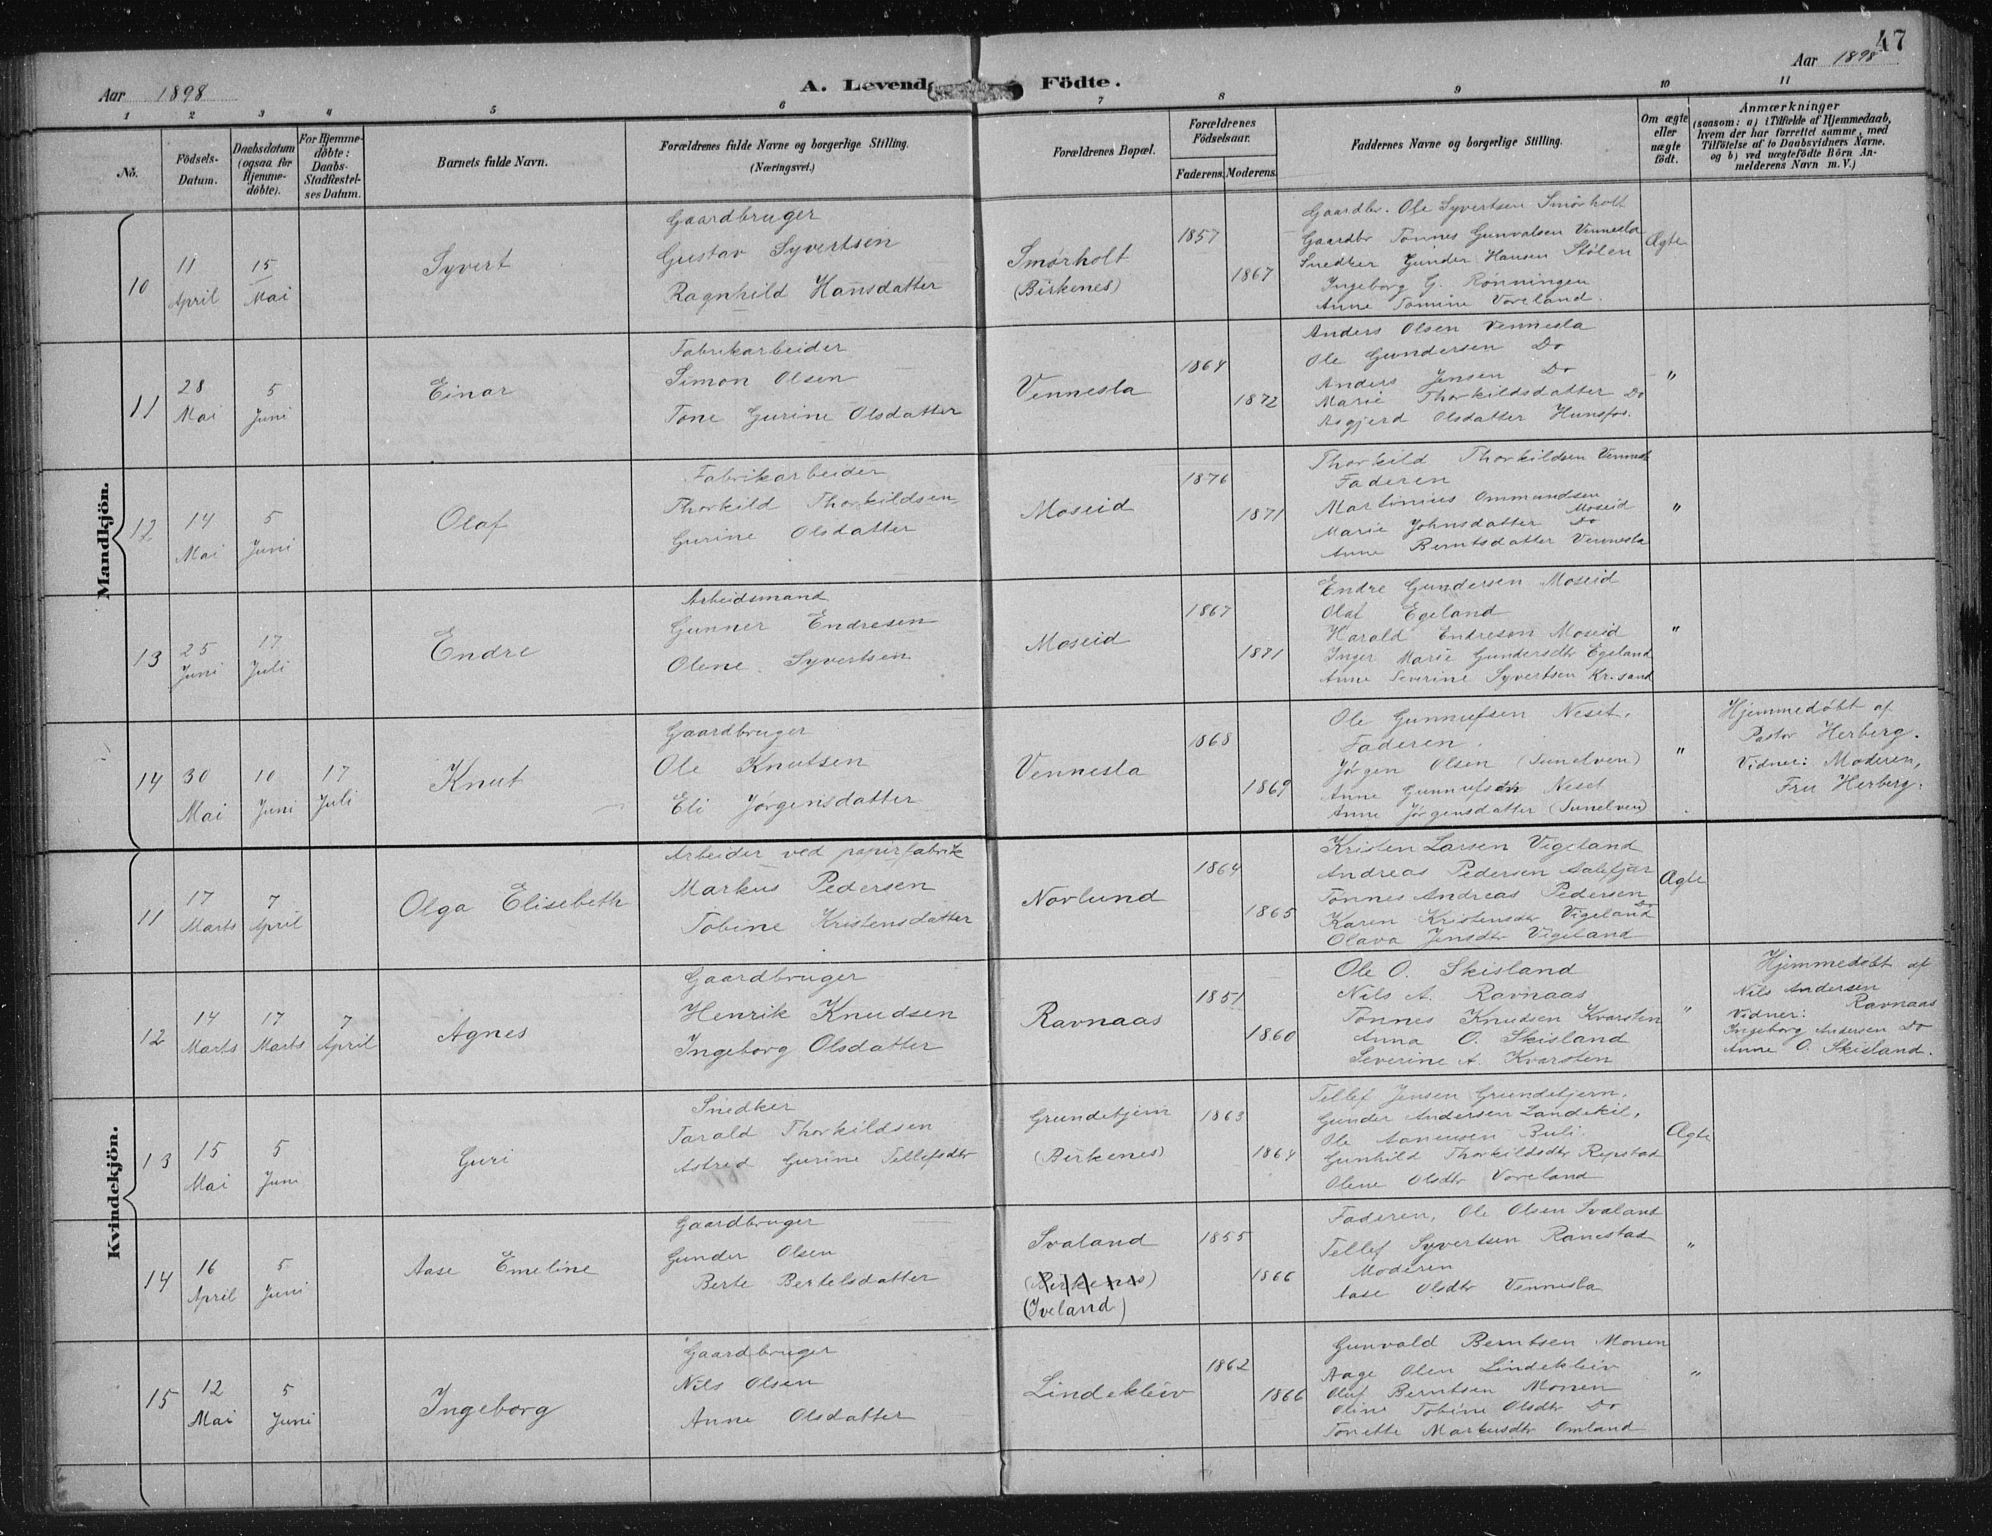 47
Aar 1898
A. Levende Födte.
Aar 1898
1 2 3 4 5 6 7 8 9 10 11
No.
Födsels-
Datum.
Daabsdatum
(ogsaa for
Hjemme-
døbte).
For Hjemme-
döbte:
Daabs-
Stadfæstel-
ses Datum.
Barnets fulde Navn.
Forældrenes fulde Navne og borgerlige Stilling.
(Næringsvei.)
Forældrenes Bopæl.
Forældrenes
Födselsaar.
Faderens. Moderens.
Faddernes Navne og borgerlige Stilling.
Om ægte
eller
uægte
födt.
Anmærkninger
(saasom: a) i Tilfælde af Hjemmedaab,
hvem der har forrettet samme, med
Tilföielse af to Daabsvidners Navne.
og b) ved uægtefödte Börn An-
melderens Navn m. V.)
Mandkjön.
10
11
April
15
Mai
Syvert
Gaardbruger
Gustav Syvertsen
Ragnhild Hansdatter
Smørholt
(Birkenes)
1857
1867
Gaardbr. Ole Syvertsen Smørholt
Gaardbr Tønnes Gunvalsen Vennesla
Snedker Gunder Hansen Stølen
Ingeborg G. Rønningen
Anne Tomine Voreland.
Ægte
11
28
Mai
5
Juni
Einar
Fabrikarbeider
Simon Olsen
Tone Gurine Olsdatter
Vennesla
1864
1872
Anders Olsen Vennesla
Ole Gundersen Do
Anders Jensen Do
Marie Thorkildsdatter Do
Asgjerd Olsdatter Hunsfos.
"
12
14
Mai
5
Juni
Olaf
Fabrikarbeider
Thorkild Thorkildsen
Gurine Olsdatter
Moseid
1876
1871
Thorkild Thorkildsen Vennesla
Faderen
Martinius Ommundsen
Moseid
Marie Johnsdatter Do
Anne Berntsdatter Vennesla
"
13
25
Juni
17
Juli
Endre
Arbeidsmand
Gunner Endresen
Olene Syvertsen
Moseid
1867
1871
Endre Gundersen Moseid
Olaf Egeland
Harald Endresen Moseid
Inger Marie Gundersdtr Egeland
Anne Severine Syvertsen Kr.sand
"
14
30
Mai
10
Juni
17
Juli
Knut
Gaardbruger
Ole Knutsen
Eli Jørgensdatter
Vennesla
1868
1869
Ole Gunnufsen Neset.
Faderen.
Jørgen Olsen (Sunelven)
Anne Gunnufsdtr Neset
Anne Jørgensdatter (Sunelven)
"
Hjemmedøbt af
Pastor Herberg.
Vidner: Moderen,
Fru Herberg.
Kvindekjön.
11
17
Marts
7
April
Olga Elisebeth
Arbeider ved papirfabrik
Markus Pedersen
Tobine Kristensdatter
Norlund
1864
1865
Kristen Larsen Vigeland
Andreas Pedersen Aalefjær
Tønnes Andreas Pedersen
Do
Karen Kristensdtr Vigeland
Olava Jensdtr Vigeland
Ægte
12
14
Marts
17
Marts
7
April
Agnes
Gaardbruger
Henrik Knudsen
Ingeborg Olsdatter
Ravnaas
1851
1860
Ole O. Skisland
Nils A. Ravnaas
Tønnes Knudsen Kvarsten
Anna O. Skisland
Severine A. Kvarsten
"
Hjemmedøbt af
Nils Andersen
Ravnaas
Vidner:
Ingeborg Andersen Do
Anne O. Skisland.
13
15
Mai
5
Juni
Guri
Snedker
Tarald Thorkildsen
Astred Gurine Tellefsdtr
Grundetjern
(Birkenes)
1863
1864
Tellef Jensen Grundetjern.
Gunder Andersen Landekil.
Ole Aanensen Buli.
Gunhild Thorkildsdtr Repstad
Olene Olsdtr Voreland
Ægte
14
16
April
5
Juni
Aase Emeline
Gaardbruger
Gunder Olsen
Berte Bertelsdatter
Svaland
(Birkenes)
(Iveland)
1855
1866
Faderen, Ole Olsen Svaland
Tellef Syvertsen Ranestad
Moderen
Aase Olsdtr Vennesla
"
15
12
Mai
5
Juni
Ingeborg
Gaardbruger
Nils Olsen
Anne Olsdatter
Lindekleiv
1862
1866
Gunvald Berntsen Monen
Aage Olen Lindekleiv
Oluf Berntsen Monen
Oline Tobine Olsdtr Do
Tonette Markusdtr Omland
"